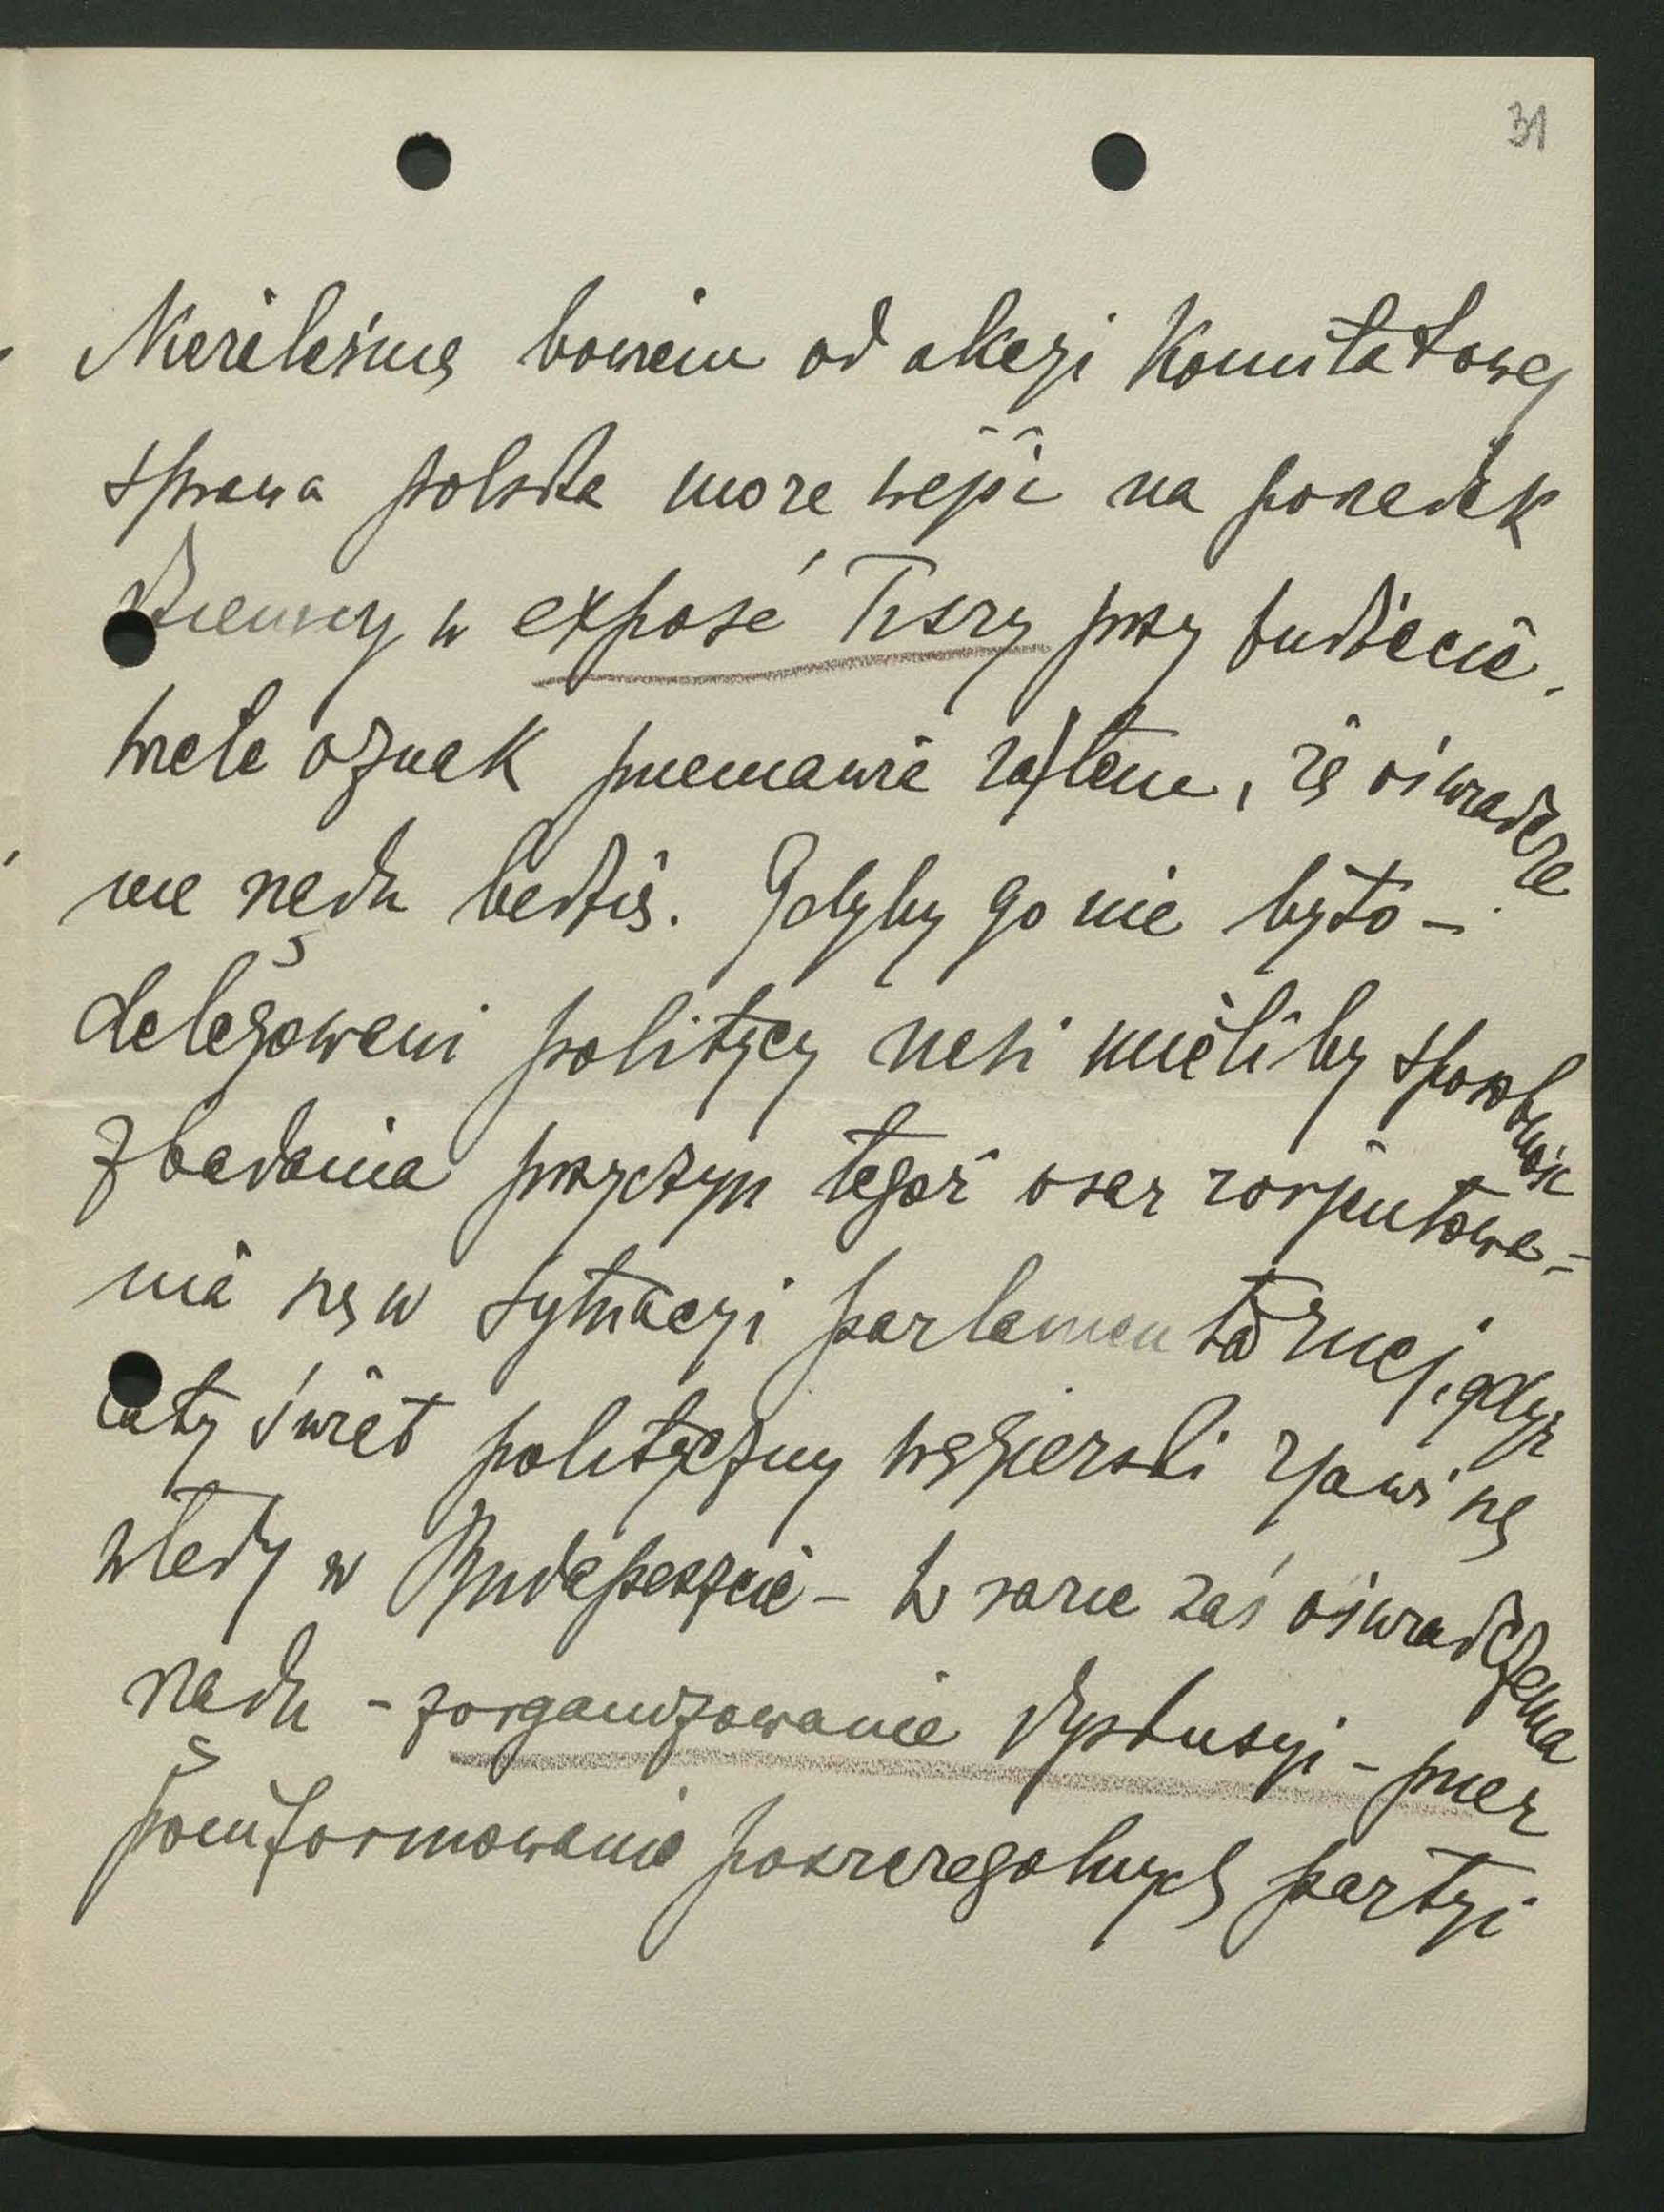 31
Niezależnie bowiem od akcyi Komitatowej
sprawa polska może wejść na porządek
dzienny w exposé Tiszy przy budżecie,
wiele oznak przemawia za tem, że oświadcze
nie rządu będzie. Gdyby go nie było –
delegowani politycy nasi mieliby sposobność
zbadania przyczyn tegoż oraz zorjentowa=
nia się w sytuacyi parlamentarnej, gdyż
cały świat polityczny węgierski zjawi się
wtedy w Budapeszcie – w razie zaś oświadczenia
rządu – zorganizowanie dyskusyi – przez
poinformowanie poszczególnych partyi